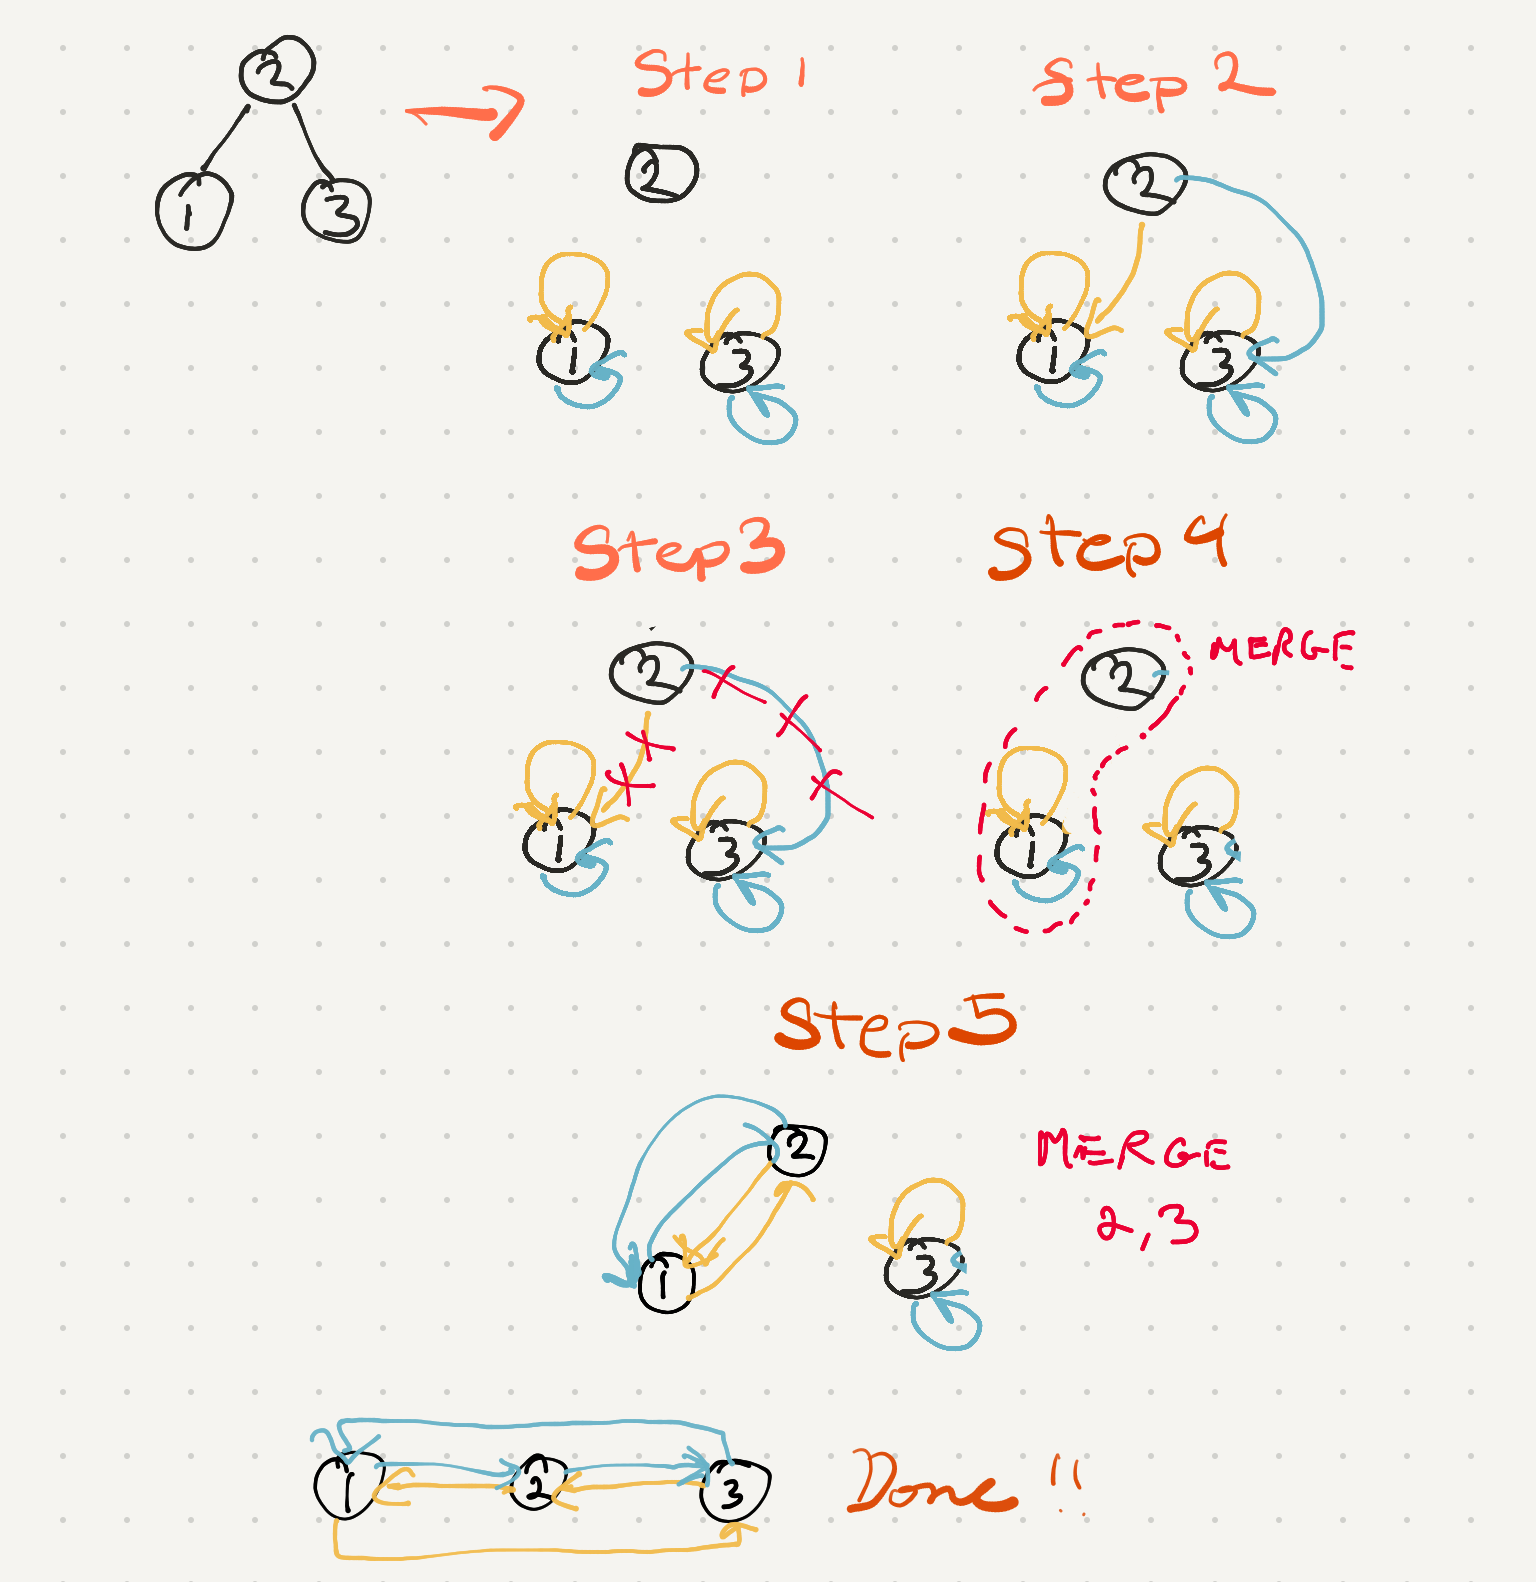 2
1
3
Step 1
2
1
3
Step 2
2
1
3
Step 3
2
1
3
Step 4
2
MERGE
1
3
Step 5
2
1
3
MERGE
2,3
1
2
3
Done !!